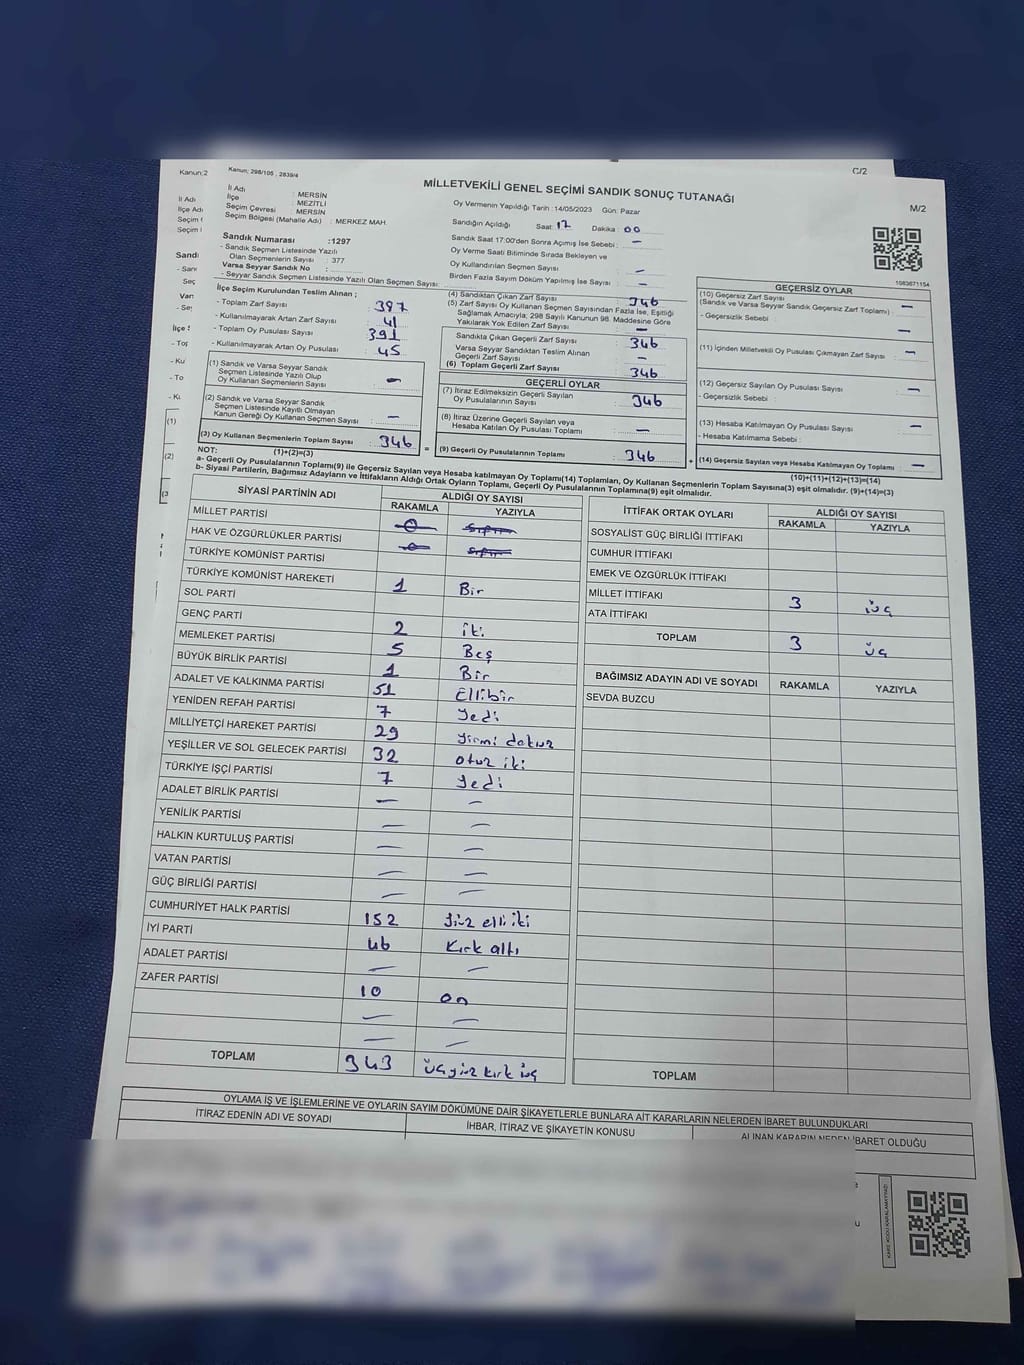 Kanun; 298/105 , 2839/4
C/2
Kanun:2
MİLLETVEKİLİ GENEL SEÇİMİ SANDIK SONUÇ TUTANAĞI
M/2
İl Adı : MERSİN
İlçe : MEZİTLİ
Seçim Çevresi : MERSİN
Seçim Bölgesi (Mahalle Adı) : MERKEZ MAH.
Oy Vermenin Yapıldığı Tarih : 14/05/2023 Gün: Pazar
Sandığın Açıldığı Saat: 17 Dakika : 00
Sandık Saat 17:00'den Sonra Açılmış İse Sebebi : —
Oy Verme Saati Bitiminde Sırada Bekleyen ve
Oy Kullandırılan Seçmen Sayısı : —
Birden Fazla Sayım Döküm Yapılmış İse Sayısı : —
1083671154
Sandık Numarası :1297
- Sandık Seçmen Listesinde Yazılı
Olan Seçmenlerin Sayısı : 377
Varsa Seyyar Sandık No :
- Seyyar Sandık Seçmen Listesinde Yazılı Olan Seçmen Sayısı:
İlçe Seçim Kurulundan Teslim Alınan ;
- Toplam Zarf Sayısı : 387
- Kullanılmayarak Artan Zarf Sayısı : 41
- Toplam Oy Pusulası Sayısı : 391
- Kullanılmayarak Artan Oy Pusulası : 45
(1) Sandık ve Varsa Seyyar Sandık
Seçmen Listesinde Yazılı Olup
Oy Kullanan Seçmenlerin Sayısı : —
(2) Sandık ve Varsa Seyyar Sandık
Seçmen Listesinde Kayıtlı Olmayan
Kanun Gereği Oy Kullanan Seçmen Sayısı : —
(3) Oy Kullanan Seçmenlerin Toplam Sayısı : 346
(1)+(2)=(3)
(4) Sandıktan Çıkan Zarf Sayısı : 346
(5) Zarf Sayısı Oy Kullanan Seçmen Sayısından Fazla İse, Eşitliği
Sağlamak Amacıyla; 298 Sayılı Kanunun 98. Maddesine Göre
Yakılarak Yok Edilen Zarf Sayısı : —
Sandıkta Çıkan Geçerli Zarf Sayısı : 346
Varsa Seyyar Sandıktan Teslim Alınan
Geçerli Zarf Sayısı : —
(6) Toplam Geçerli Zarf Sayısı : 346
GEÇERLİ OYLAR
(7) İtiraz Edilmeksizin Geçerli Sayılan
Oy Pusulalarının Sayısı : 346
(8) İtiraz Üzerine Geçerli Sayılan veya
Hesaba Katılan Oy Pusulası Toplamı : —
= (9) Geçerli Oy Pusulalarının Toplamı : 346
GEÇERSİZ OYLAR
(10) Geçersiz Zarf Sayısı
(Sandık ve Varsa Seyyar Sandık Geçersiz Zarf Toplamı) : —
- Geçersizlik Sebebi : —
(11) İçinden Milletvekili Oy Pusulası Çıkmayan Zarf Sayısı : —
(12) Geçersiz Sayılan Oy Pusulası Sayısı : —
- Geçersizlik Sebebi :
(13) Hesaba Katılmayan Oy Pusulası Sayısı : —
- Hesaba Katılmama Sebebi :
+ (14) Geçersiz Sayılan veya Hesaba Katılmayan Oy Toplamı : —
(10)+(11)+(12)+(13)=(14)
NOT:
a- Geçerli Oy Pusulalarının Toplamı(9) ile Geçersiz Sayılan veya Hesaba katılmayan Oy Toplamı(14) Toplamları, Oy Kullanan Seçmenlerin Toplam Sayısına(3) eşit olmalıdır. (9)+(14)=(3)
b- Siyasi Partilerin, Bağımsız Adayların ve İttifakların Aldığı Ortak Oyların Toplamı, Geçerli Oy Pusulalarının Toplamına(9) eşit olmalıdır.
SİYASİ PARTİNİN ADI ALDIĞI OY SAYISI
RAKAMLA YAZIYLA
MİLLET PARTİSİ 0 Sıfır
HAK VE ÖZGÜRLÜKLER PARTİSİ 0 Sıfır
TÜRKİYE KOMÜNİST PARTİSİ
TÜRKİYE KOMÜNİST HAREKETİ 1 Bir
SOL PARTİ
GENÇ PARTİ 2 iki
MEMLEKET PARTİSİ 5 Beş
BÜYÜK BİRLİK PARTİSİ 1 Bir
ADALET VE KALKINMA PARTİSİ 51 Ellibir
YENİDEN REFAH PARTİSİ 7 Yedi
MİLLİYETÇİ HAREKET PARTİSİ 29 yirmi dokuz
YEŞİLLER VE SOL GELECEK PARTİSİ 32 otuz iki
TÜRKİYE İŞÇİ PARTİSİ 7 Yedi
ADALET BİRLİK PARTİSİ — —
YENİLİK PARTİSİ — —
HALKIN KURTULUŞ PARTİSİ — —
VATAN PARTİSİ — —
GÜÇ BİRLİĞİ PARTİSİ — —
CUMHURİYET HALK PARTİSİ 152 Yüz elli iki
İYİ PARTİ 46 Kırk altı
ADALET PARTİSİ — —
ZAFER PARTİSİ 10 on
— —
— —
TOPLAM 343 üçyüz kırk üç
İTTİFAK ORTAK OYLARI ALDIĞI OY SAYISI
RAKAMLA YAZIYLA
SOSYALİST GÜÇ BİRLİĞİ İTTİFAKI
CUMHUR İTTİFAKI
EMEK VE ÖZGÜRLÜK İTTİFAKI
MİLLET İTTİFAKI 3 üç
ATA İTTİFAKI
TOPLAM 3 üç
BAĞIMSIZ ADAYIN ADI VE SOYADI RAKAMLA YAZIYLA
SEVDA BUZCU
TOPLAM
OYLAMA İŞ VE İŞLEMLERİNE VE OYLARIN SAYIM DÖKÜMÜNE DAİR ŞİKAYETLERLE BUNLARA AİT KARARLARIN NELERDEN İBARET BULUNDUKLARI
İTİRAZ EDENİN ADI VE SOYADI İHBAR, İTİRAZ VE ŞİKAYETİN KONUSU ALINAN KARARIN NEDEN İBARET OLDUĞU
KARE KODU KARALAMAYINIZ